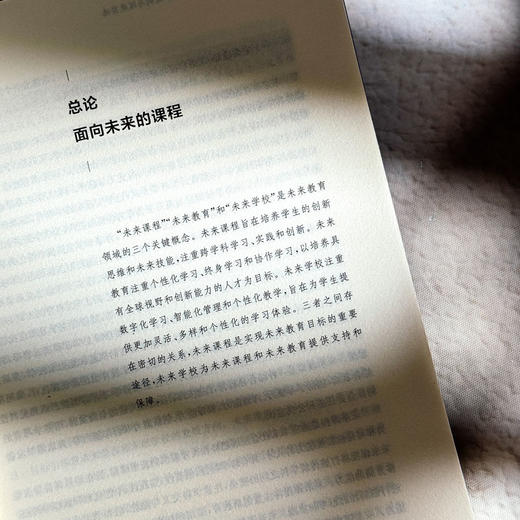 总论
面向未来的课程
“未来课程”“未来教育”和“未来学校”是未来教育
领域的三个关键概念。未来课程旨在培养学生的创新
思维和未来技能，注重跨学科学习、实践和创新。未来
教育注重个性化学习、终身学习和协作学习，以培养具
有全球视野和创新能力的人才为目标。未来学校注重
数字化学习、智能化管理和个性化教学，旨在为学生提
供更加灵活、多样和个性化的学习体验。三者之间存
在密切的关系，未来课程是实现未来教育目标的重要
途径，未来学校为未来课程和未来教育提供支持和
保障。